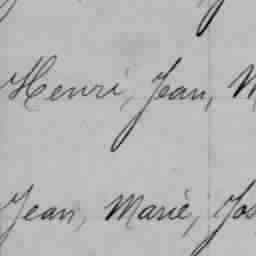 Henri, Jean,
Jean, Marie,